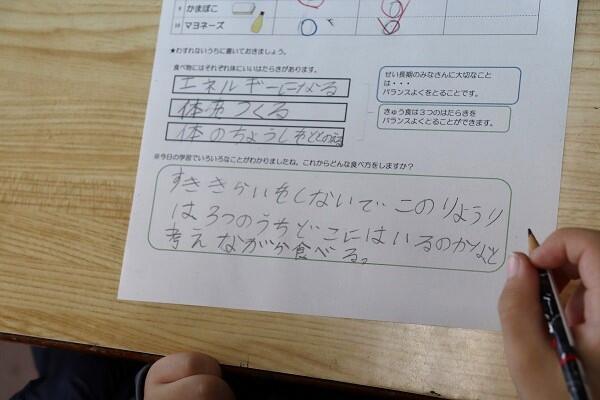 9 かまぼこ
10 マヨネーズ
★わすれないうちに書いておきましょう。
食べ物にはそれぞれ体にいいはたらきがあります。
エネルギーになる
体をつくる
体のちょうしをととのえる
せい長期のみなさんに大切なこと
は・・・
バランスよくをとることです。
きゅう食は3つのはたらきを
バランスよくとることができます。
※今日の学習でいろいろなことがわかりましたね。これからどんな食べ方をしますか？
すききらいをしないで このりょうり
は3つのうちどこにはいるのかなと
考えながら食べる。